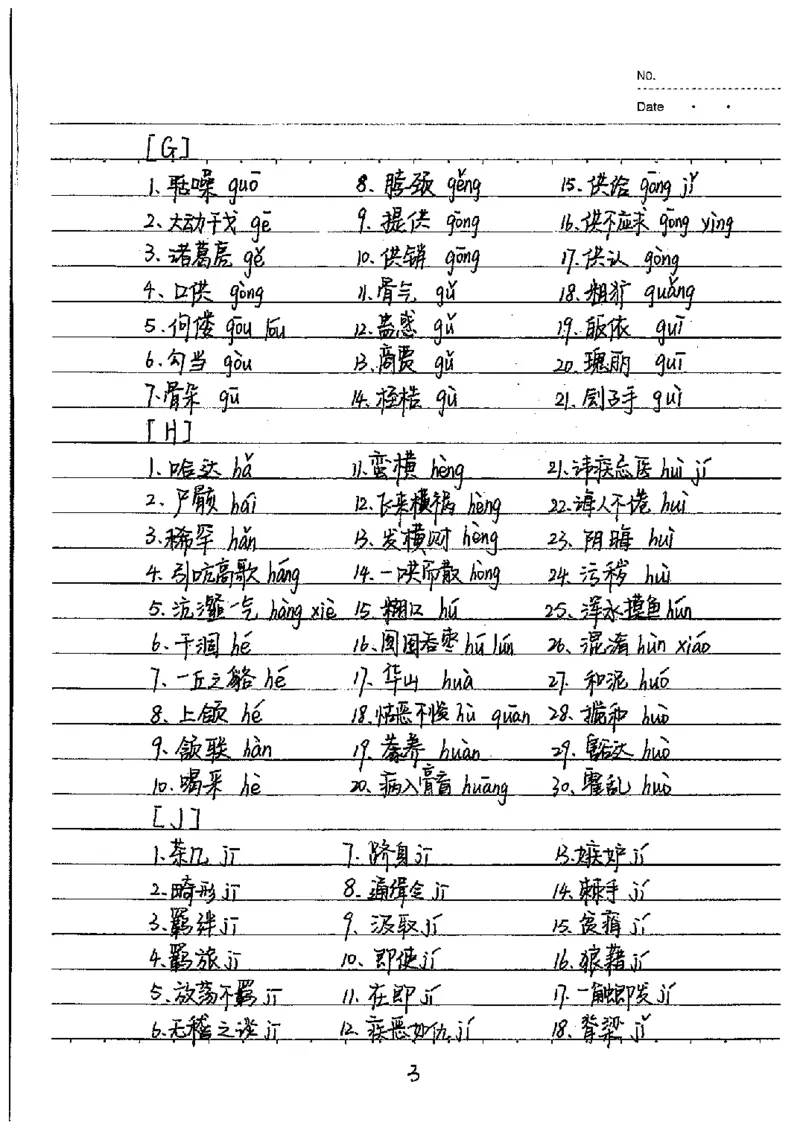 NO.
Date
[G]
1、聒噪 guō 8、脖颈 gěng 15、供给 gōng jǐ
2、大动干戈 gē 9、提供 gōng 16、供不应求 gōng yìng
3、诸葛亮 gě 10、供销 gōng 17、供认 gòng
4、口供 gòng 11、骨气 gǔ 18、粗犷 guǎng
5、佝偻 gōu lóu 12、蛊惑 gǔ 19、皈依 guī
6、勾当 gòu 13、商贾 gǔ 20、瑰丽 guī
7、骨朵 gū 14、桎梏 gù 21、刽子手 guì
[H]
1、哈达 hǎ 11、蛮横 hèng 21、讳疾忌医 huì jí
2、尸骸 hái 12、飞来横祸 hèng 22、诲人不倦 huì
3、稀罕 hǎn 13、发横财 hèng 23、阴晦 huì
4、引吭高歌 háng 14、一哄而散 hòng 24、污秽 huì
5、沆瀣一气 hàng xiè 15、糊口 hú 25、浑水摸鱼 hún
6、干涸 hé 16、囫囵吞枣 hú lún 26、混淆 hùn xiáo
7、一丘之貉 hé 17、华山 huà 27、和泥 huó
8、上颌 hé 18、怙恶不悛 hù quān 28、搀和 huò
9、颔联 hàn 19、豢养 huàn 29、豁达 huò
10、喝采 hè 20、病入膏肓 huāng 30、霍乱 huò
[J]
1、茶几 jī 7、跻身 jī 13、嫉妒 jí
2、畸形 jī 8、通缉令 jī 14、棘手 jí
3、羁绊 jī 9、汲取 jí 15、贫瘠 jí
4、羁旅 jī 10、即使 jí 16、狼藉 jí
5、放荡不羁 jī 11、在即 jí 17、一触即发 jí
6、无稽之谈 jī 12、疾恶如仇 jí 18、脊梁 jǐ
3